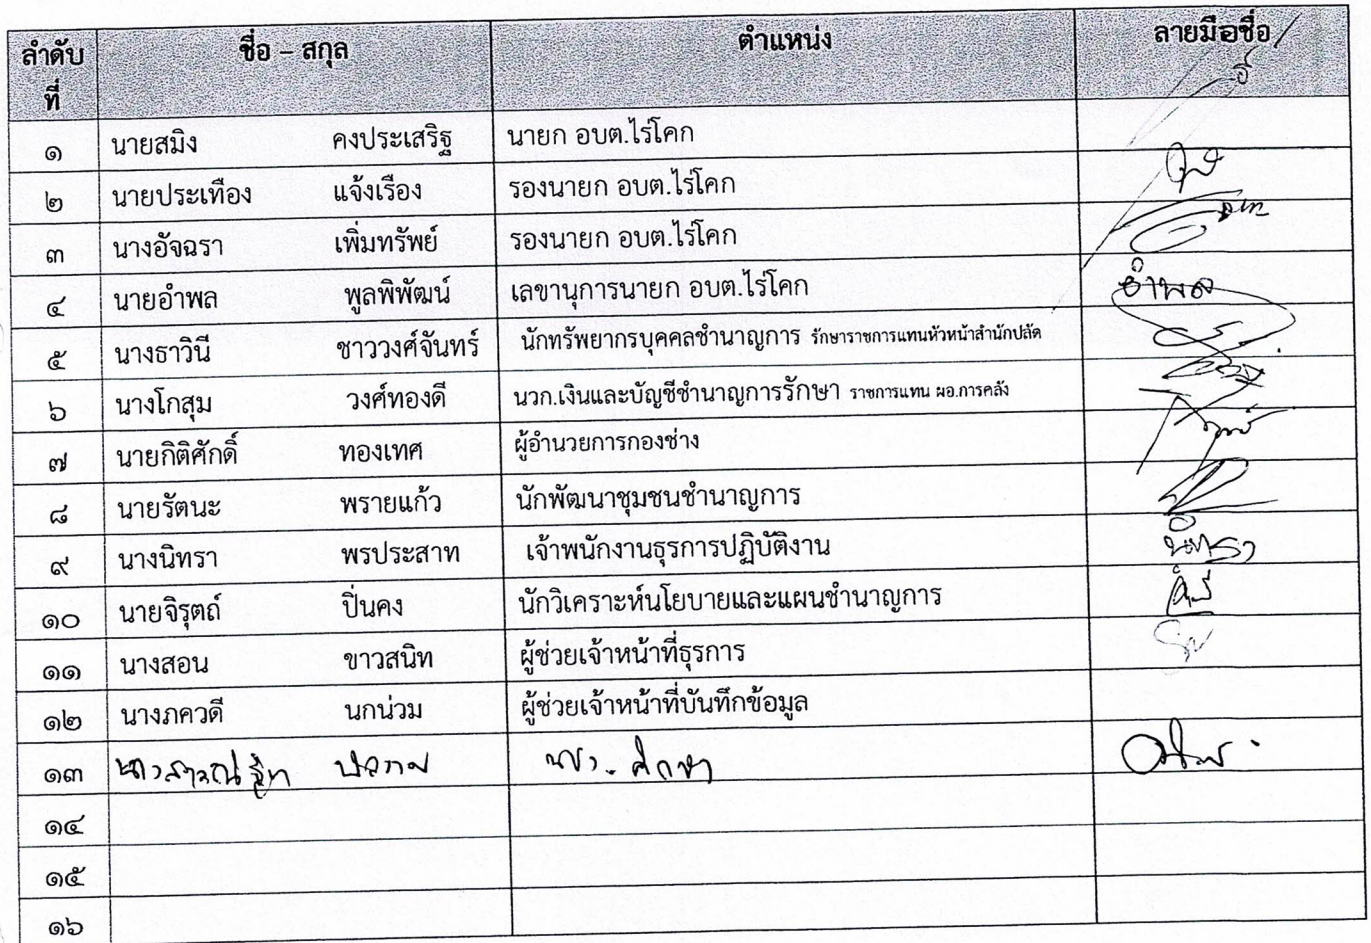 ลำดับที่ ชื่อ – สกุล ตำแหน่ง ลายมือชื่อ
๑ นายสมิง คงประเสริฐ นายก อบต.ไร่โคก
๒ นายประเทือง แจ้งเรือง รองนายก อบต.ไร่โคก
๓ นางอัจฉรา เพิ่มทรัพย์ รองนายก อบต.ไร่โคก
๔ นายอำพล พูลพิพัฒน์ เลขานุการนายก อบต.ไร่โคก อำพล
๕ นางธาวินี ชาววงศ์จันทร์ นักทรัพยากรบุคคลชำนาญการ รักษาราชการแทนหัวหน้าสำนักปลัด
๖ นางโกสุม วงศ์ทองดี นวก.เงินและบัญชีชำนาญการรักษา ราชการแทน ผอ.การคลัง
๗ นายกิติศักดิ์ ทองเทศ ผู้อำนวยการกองช่าง
๘ นายรัตนะ พรายแก้ว นักพัฒนาชุมชนชำนาญการ
๙ นางนิทรา พรประสาท เจ้าพนักงานธุรการปฏิบัติงาน นิทรา
๑๐ นายจิรุตถ์ ปิ่นคง นักวิเคราะห์นโยบายและแผนชำนาญการ
๑๑ นางสอน ขาวสนิท ผู้ช่วยเจ้าหน้าที่ธุรการ
๑๒ นางภควดี นกน่วม ผู้ช่วยเจ้าหน้าที่บันทึกข้อมูล
๑๓
๑๔
๑๕
๑๖